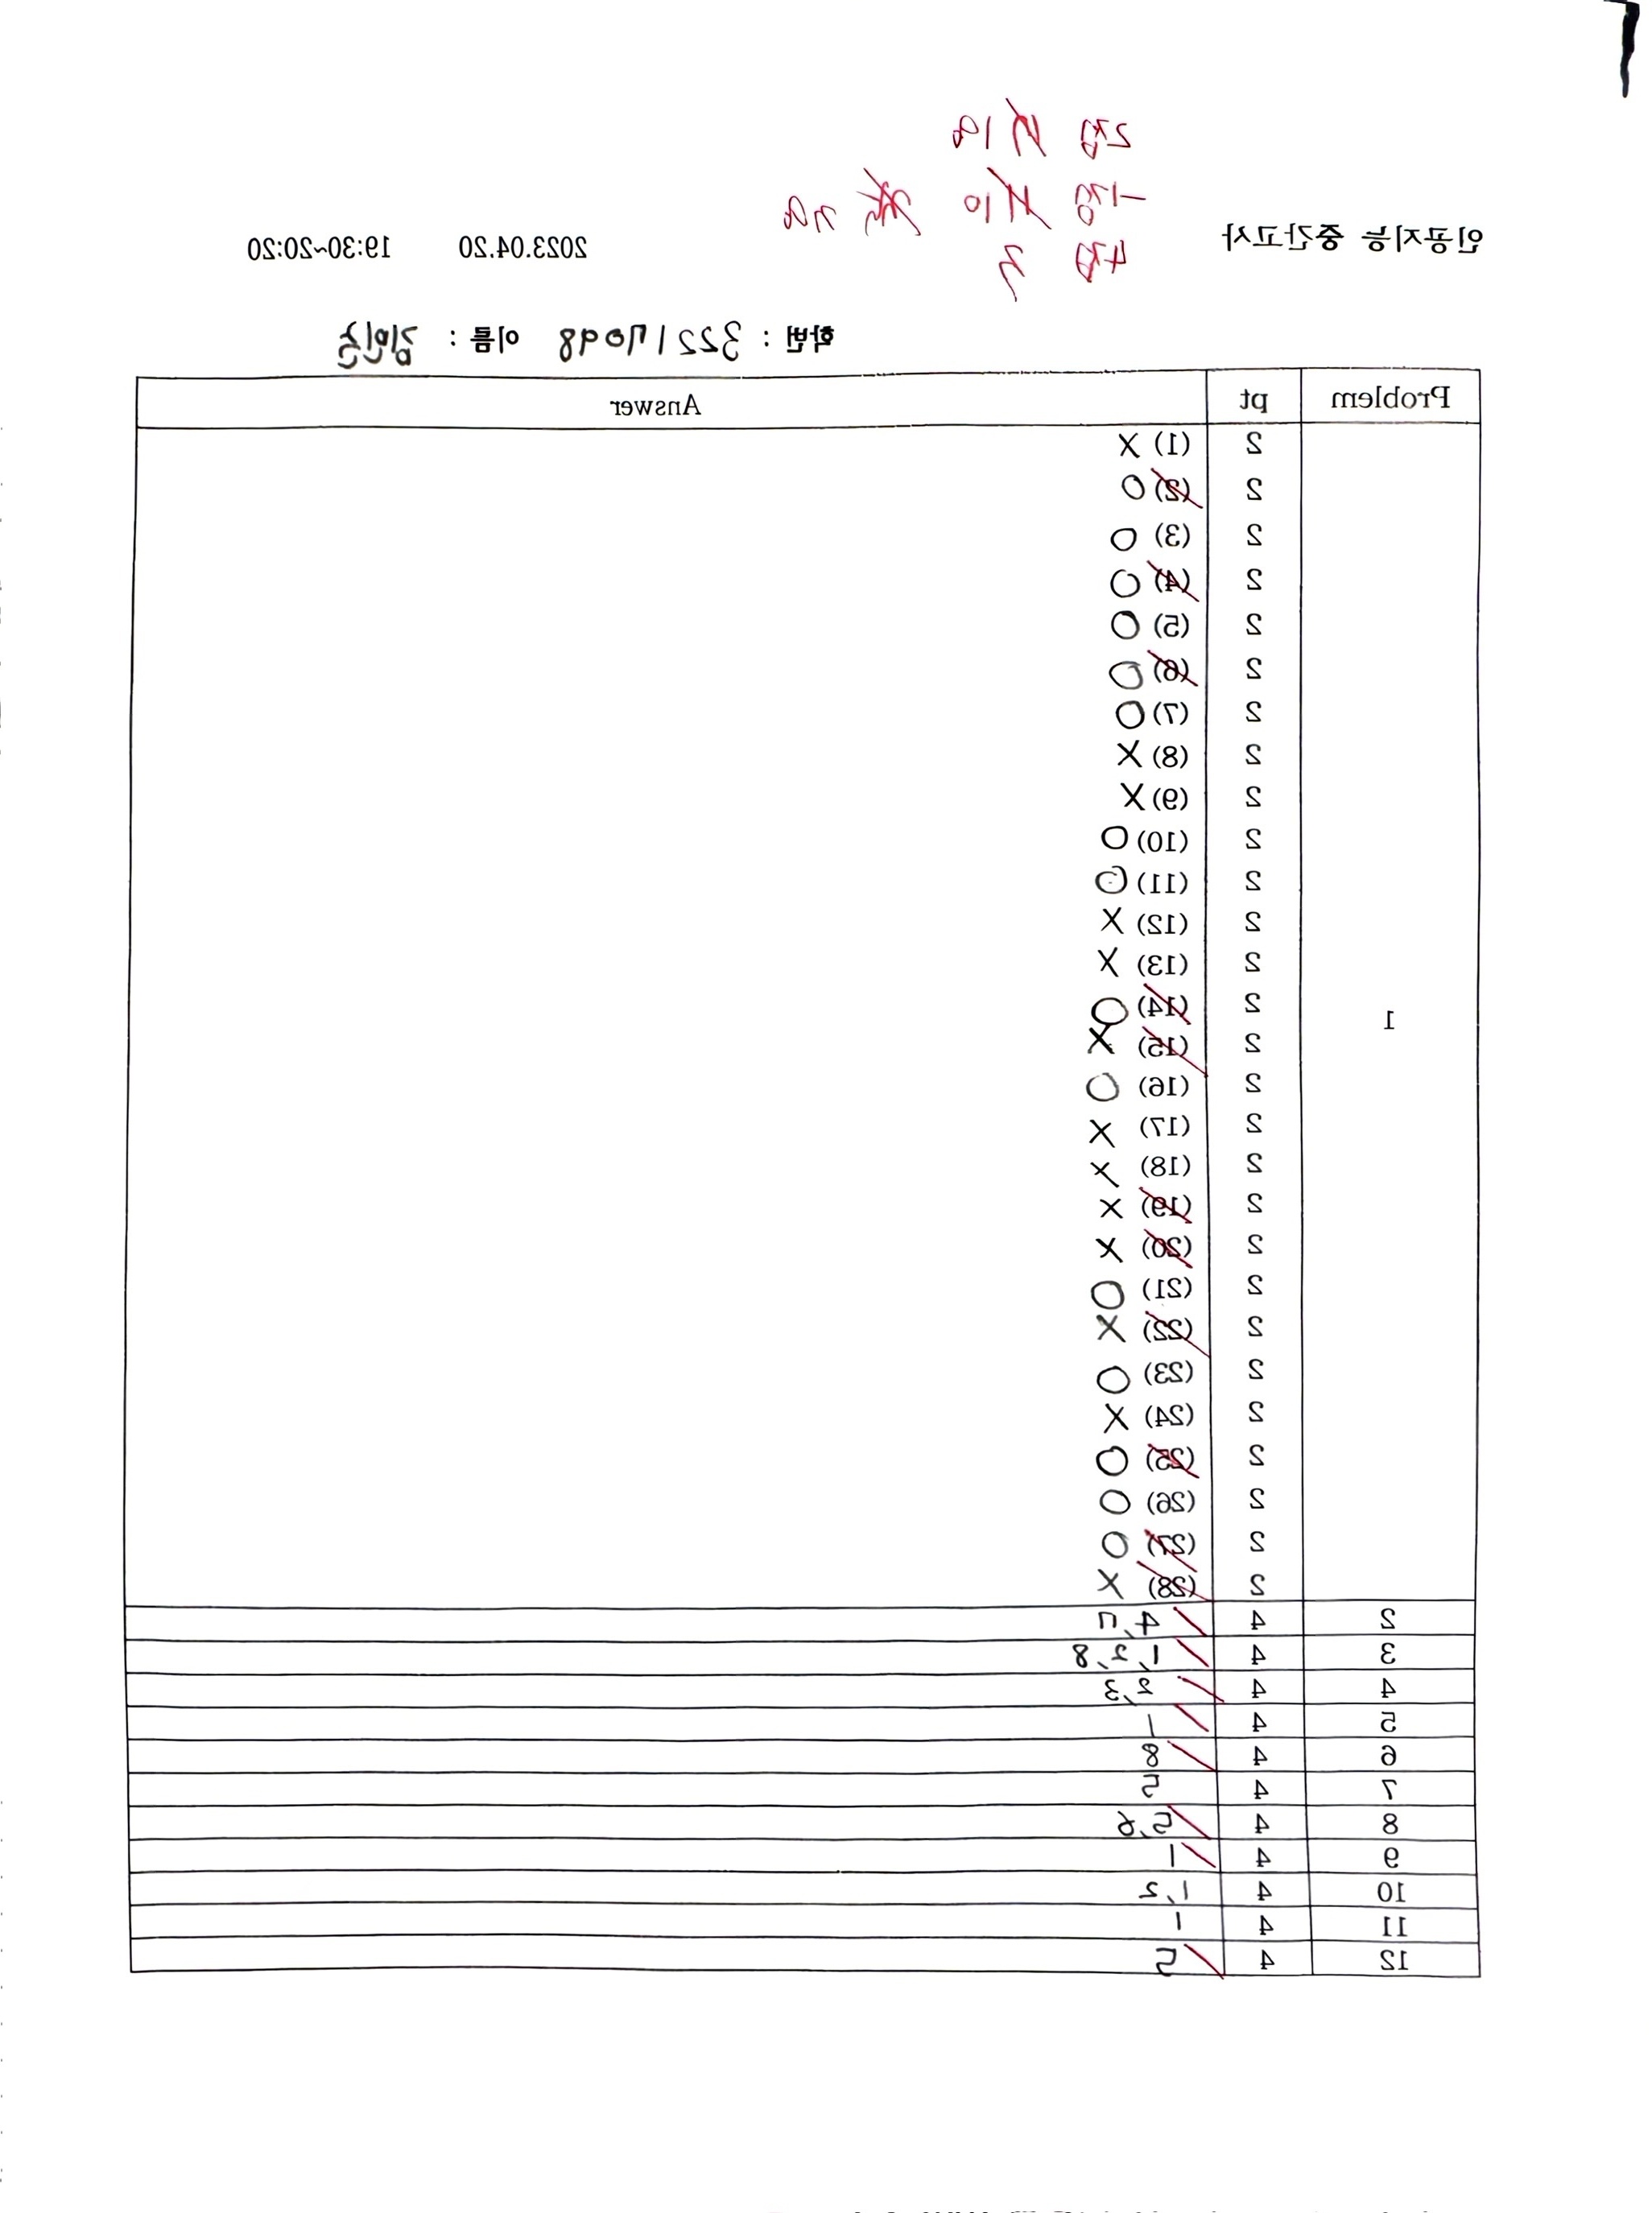 2점 18
-1점 10
4점 3
인공지능 중간고사 2023.04.20 19:30~20:20
학번 : 32217098 이름 : 김민승
Problem pt Answer
1
2 (1) X
2 (2) O
2 (3) O
2 (4) O
2 (5) O
2 (6) O
2 (7) O
2 (8) X
2 (9) X
2 (10) O
2 (11) O
2 (12) X
2 (13) X
2 (14) O
2 (15) X
2 (16) O
2 (17) X
2 (18) X
2 (19) X
2 (20) X
2 (21) O
2 (22) X
2 (23) O
2 (24) X
2 (25) O
2 (26) O
2 (27) O
2 (28) X
2 4 4, 5
3 4 1, 2, 8
4 4 2, 3
5 4 1
6 4 8
7 4 5
8 4 5, 6
9 4 1
10 4 1, 2
11 4 1
12 4 5